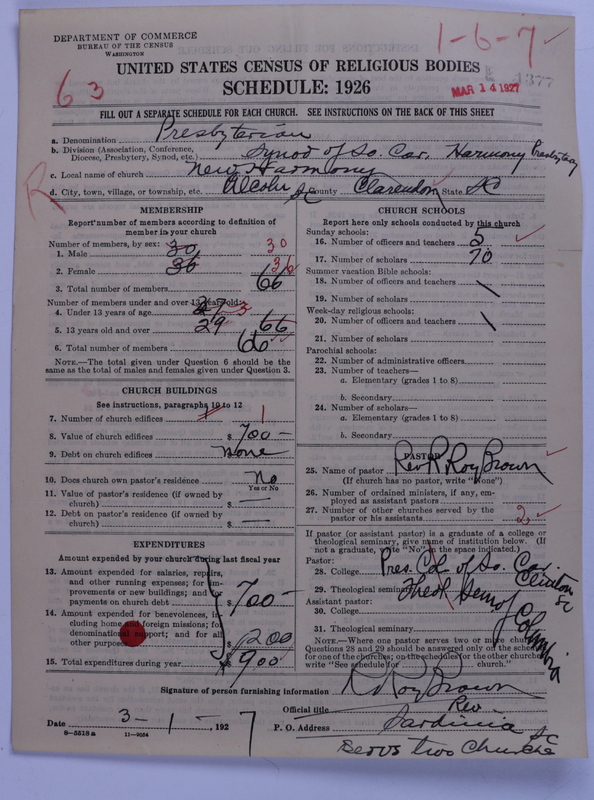 DEPARTMENT OF COMMERCE
BUREAU OF THE CENSUS
WASHINGTON
1-6-7
4377
MAR 14 1927
63
UNITED STATES CENSUS OF RELIGIOUS BODIES
SCHEDULE: 1926
FILL OUT A SEPARATE SCHEDULE FOR EACH CHURCH. SEE INSTRUCTIONS ON THE BACK OF THIS SHEET
a. Denomination Presbyterian
b. Division (Association, Conference, Diocese, Presbytery, Synod, etc.) Synod of So. Car. Harmony Presbytery
c. Local name of church New Harmony
d. City, town, village, or township, etc. Alcolu SC County Clarendon State SC
R
MEMBERSHIP
Report number of members according to definition of member in your church
Number of members, by sex:
1. Male 30 30
2. Female 36 36
3. Total number of members 66
Number of members under and over 13 years old:
4. Under 13 years of age 3
5. 13 years old and over 29 66
6. Total number of members 66
NOTE.—The total given under Question 6 should be the same as the total of males and females given under Question 3.
CHURCH BUILDINGS
See instructions, paragraphs 10 to 12
7. Number of church edifices 1
8. Value of church edifices $ 700—
9. Debt on church edifices $ none
10. Does church own pastor's residence No
Yes or No
11. Value of pastor's residence (if owned by church) $ —
12. Debt on pastor's residence (if owned by church) $ —
EXPENDITURES
Amount expended by your church during last fiscal year
13. Amount expended for salaries, repairs, and other running expenses; for improvements or new buildings; and for payments on church debt $ 700—
14. Amount expended for benevolences, including home and foreign missions; for denominational support; and for all other purposes $ 200
15. Total expenditures during year $ 900
CHURCH SCHOOLS
Report here only schools conducted by this church
Sunday schools:
16. Number of officers and teachers 5
17. Number of scholars 70
Summer vacation Bible schools:
18. Number of officers and teachers
19. Number of scholars
Week-day religious schools:
20. Number of officers and teachers
21. Number of scholars
Parochial schools:
22. Number of administrative officers
23. Number of teachers—
a. Elementary (grades 1 to 8)
b. Secondary
24. Number of scholars—
a. Elementary (grades 1 to 8)
b. Secondary
PASTOR
25. Name of pastor Rev R Roy Brown
(If church has no pastor, write "None")
26. Number of ordained ministers, if any, employed as assistant pastors
27. Number of other churches served by the pastor or his assistants 2
If pastor (or assistant pastor) is a graduate of a college or theological seminary, give name of institution below. (If not a graduate, write "No" in the space indicated.)
Pastor:
28. College Pres. Col of So. Car. Clinton SC
29. Theological seminary Theol Sem of Columbia
Assistant pastor:
30. College
31. Theological seminary
NOTE.—Where one pastor serves two or more churches, Questions 28 and 29 should be answered only on the schedule for one of the churches; on the schedules for the other churches write "See schedule for church."
Signature of person furnishing information R Roy Brown
Official title Rev
Date 3-1-, 1927
P. O. Address Sardinia SC
8—5518a 11—9554
Serves two Churches